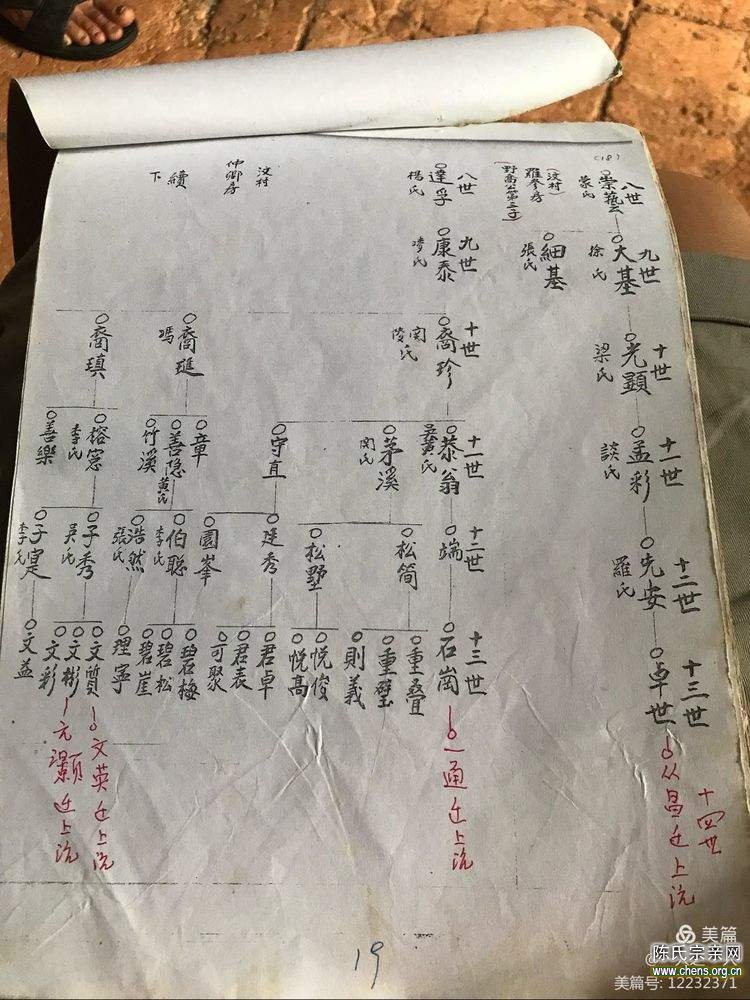 (18)
八世
崇藝
蒙氏
(汶村)
羅參房
九世
大基
徐氏
細基
張氏
十世
光顯
梁氏
十一世
孟彩
談氏
十二世
先安
羅氏
十三世
卓世
十四世
从昌迁上沆
八世
達孚
楊氏
九世
康泰
李氏
十世
裔珍
関氏
陵氏
十一世
恭翁
吴氏
黄氏
茅溪
関氏
守直
十二世
端
松筒
松野
廷秀
園峯
十三世
石崗
重叠
重璧
則義
悅俊
悅高
君卓
君表
可聚
一通迁上沆
汶村
仲卿房
續
下
裔璡
冯
裔瑱
章
善隐
黄氏
竹溪
榕窓
李氏
善樂
伯聪
李氏
浩然
張氏
子秀
吴氏
子寔
李氏
碧梅
碧松
碧崖
理寧
文質
文彬
文彩
文益
文英迁上沆
元灝迁上沆
19
美篇
陈氏宗亲网
www.chens.org.cn
美篇号: 12232371